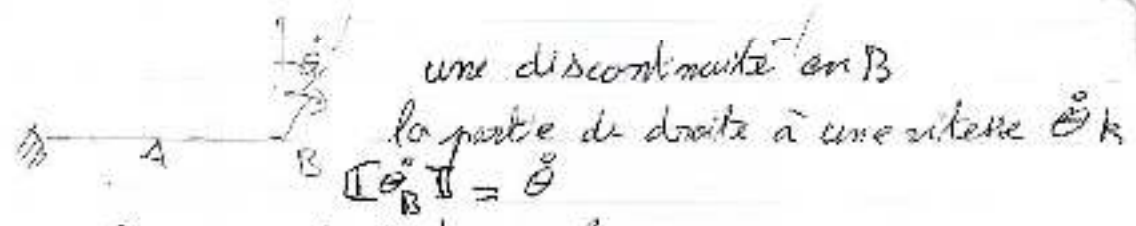 θ̊
une discontinuité en B
la partie de droite à une vitesse θ̊ k
A B
⟦θ̊_B⟧ = θ̊